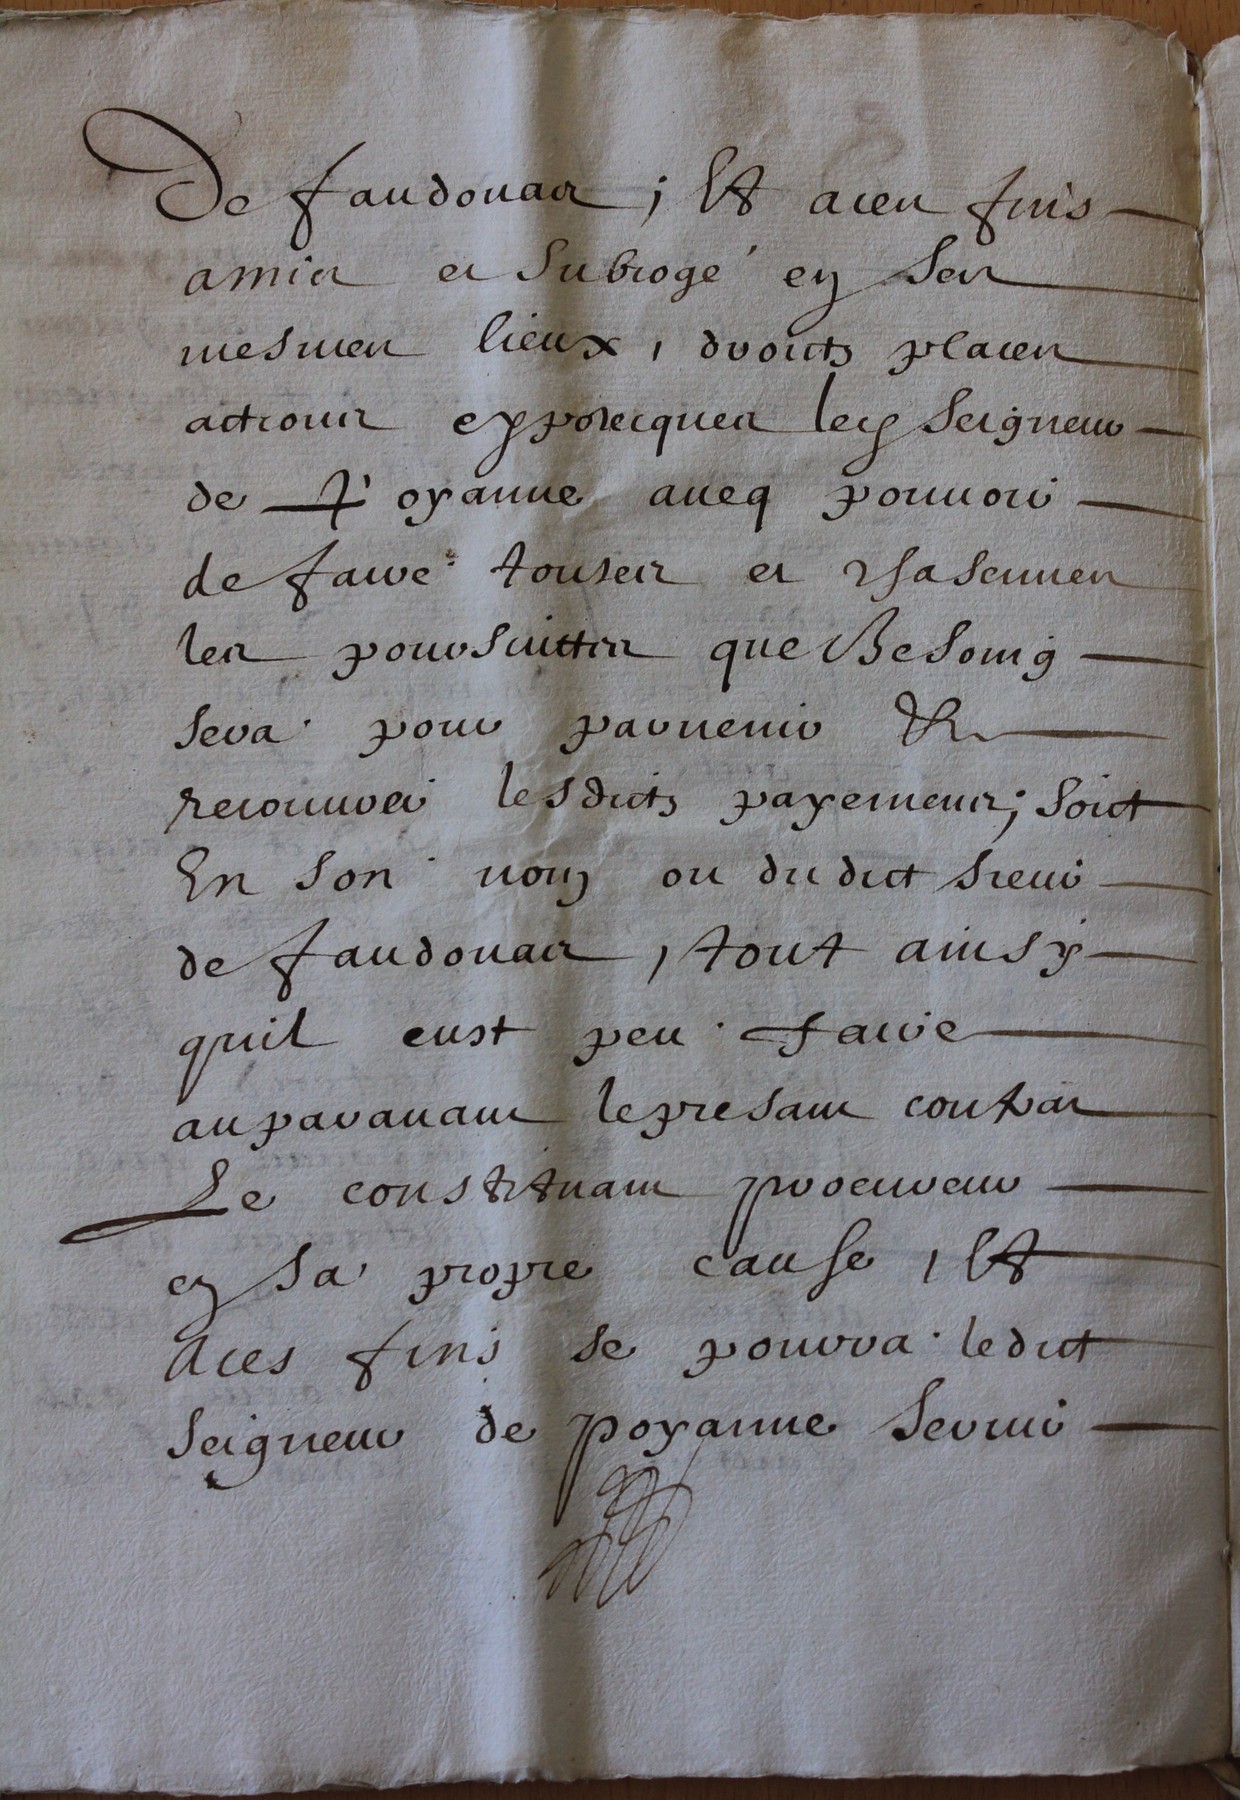 De faudouas ; Et a ces fins
a mis et subrogé en ses
mesmes lieux, droits places
actions ypotecques led Seigneur
de Poyanne aueq pouuoir
de faire toutes et chascunes
les poursuittes que Besoing
sera pour paruenir Et
recouurer lesdicts payemens; soict
En son nom ou dudict sieur
de faudouas, tout ainsy
quil eust peu faire
auparauant le presant contrat
Le constituant procureur
en sa propre cause, Et
a ces fins se pourra ledict
Seigneur de poyanne seruir